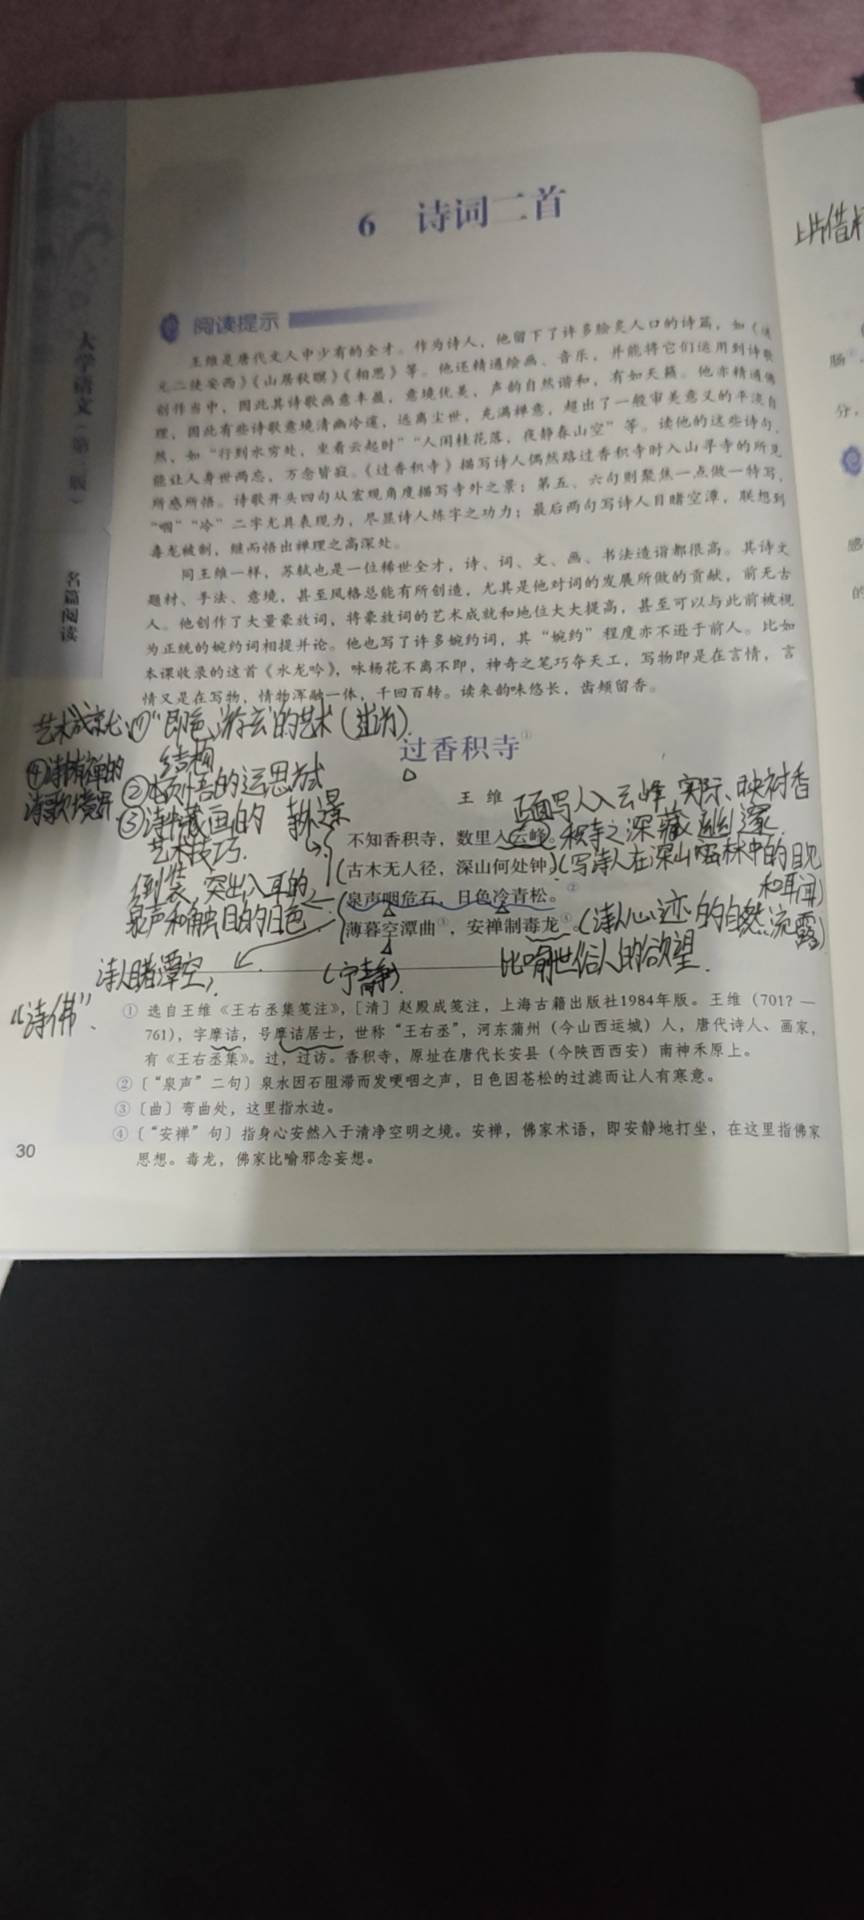 6 诗词二首
上片借
阅读提示
王维是唐代文人中少有的全才。作为诗人，他留下了许多脍炙人口的诗篇，如《送
元二使安西》《山居秋暝》《相思》等。他还精通绘画、音乐，并能将它们运用到诗歌
创作当中，因此其诗歌画意丰盈，意境优美，声韵自然谐和，有如天籁。他亦精通佛
理，因此有些诗歌意境清幽冷邃，远离尘世，充满禅意，超出了一般审美意义的平淡自
然，如“行到水穷处，坐看云起时”“人闲桂花落，夜静春山空”等。读他的这些诗句，
能让人身世两忘，万念皆寂。《过香积寺》描写诗人偶然路过香积寺时入山寻寺的所见
所感所悟。诗歌开头四句从宏观角度描写寺外之景；第五、六句则聚焦一点做一特写，
“咽”“冷”二字尤具表现力，尽显诗人炼字之功力；最后两句写诗人目睹空潭，联想到
毒龙被制，继而悟出禅理之高深处。
同王维一样，苏轼也是一位稀世全才，诗、词、文、画、书法造诣都很高。其诗文
题材、手法、意境，甚至风格总能有所创造，尤其是他对词的发展所做的贡献，前无古
人。他创作了大量豪放词，将豪放词的艺术成就和地位大大提高，甚至可以与此前被视
为正统的婉约词相提并论。他也写了许多婉约词，其“婉约”程度亦不逊于前人。比如
本课收录的这首《水龙吟》，咏杨花不离不即，神奇之笔巧夺天工，写物即是在言情，言
情又是在写物，情物浑融一体，千回百转。读来韵味悠长，齿颊留香。
大学语文（第三版）
名篇阅读
艺术成就七：①“即色游玄”的艺术
结构
过香积寺①
④诗中有禅的
诗歌境界
②本顿悟的运思方式
③诗中藏画的
艺术技巧.
王 维
正面写入云峰 实际映衬香
积寺之深藏幽邃
不知香积寺，数里入云峰。
古木无人径，深山何处钟。
(写诗人在深山密林中的目见
和耳闻)
泉声咽危石，日色冷青松。②
倒装，突出入耳的
泉声和触目的日色
薄暮空潭曲③，安禅制毒龙④。
(诗人心迹的自然流露)
诗人目睹潭空，
(宁静)
比喻世俗人的欲望.
“诗佛”
① 选自王维《王右丞集笺注》，[清] 赵殿成笺注，上海古籍出版社1984年版。王维（701？—
761），字摩诘，号摩诘居士，世称“王右丞”，河东蒲州（今山西运城）人，唐代诗人、画家，
有《王右丞集》。过，过访。香积寺，原址在唐代长安县（今陕西西安）南神禾原上。
② 〔“泉声”二句〕泉水因石阻滞而发哽咽之声，日色因苍松的过滤而让人有寒意。
③ 〔曲〕弯曲处，这里指水边。
④ 〔“安禅”句〕指身心安然入于清净空明之境。安禅，佛家术语，即安静地打坐，在这里指佛家
思想。毒龙，佛家比喻邪念妄想。
30
肠
分。
感
的